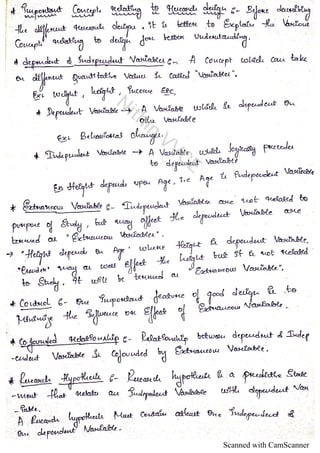 * Important Concepts relating to Research design :- Before describing
the different research designs, it is better to Explain the Various
Concepts relating to design for better Understanding.
* dependent & Independent Variables :- A Concept which Can take
on different Quantitative Values is Called "Variables".
Ex: Weight, height, Income Etc.
* Dependent Variable → A Variable Which is dependent on
other Variable
Ex: Behavioral changes.
* Independent Variable → A Variable which logically precedes
to dependent Variable
Ex Height depends upon Age, i.e Age is Independent Variable
* Extraneous Variable :- Independent Variables are not related to
purpose of Study, but may affect the dependent Variable are
termed as "Extraneous Variables".
→ "Height depends on Age" where Height is dependent Variable.
"Gender" may as well effect the height but it is not related
to Study, it will be termed as "Extraneous Variable".
* Control :- One Important feature of good design is to
Minimize the Influence or Effect of Extraneous Variable.
* Cofounded relationship :- Relationship between dependent & Indep
-endent Variable is Cofounded by Extraneous Variable.
* Research Hypothesis :- Research hypothesis is a predictive State
-ment that relates an Independent Variable with dependent Var
-iable.
A Research hypothesis Must Contain atleast One Independent &
One dependent Variable.
Scanned with CamScanner